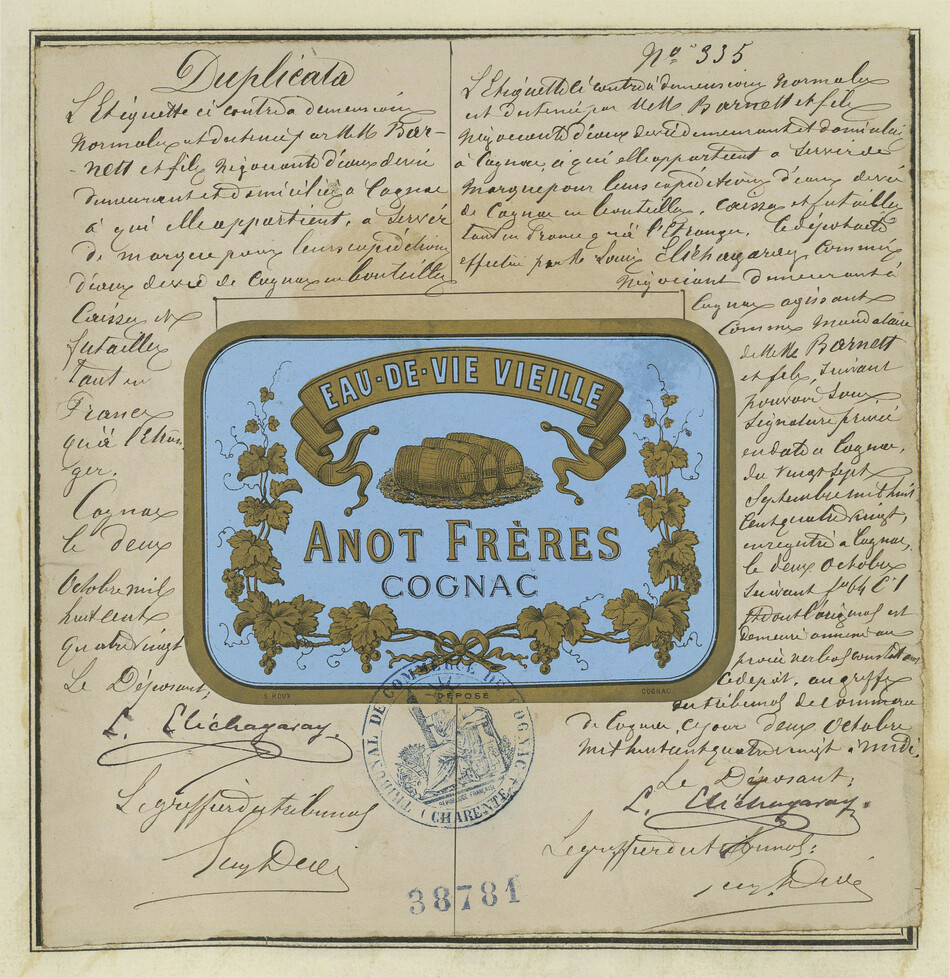 Duplicata
L'Etiquette ci contre à dimensions
normales est destinée par MM Bar-
-nett et fils négociants d'eaux de vie
demeurant et domiciliés à Cognac
à qui elle appartient, à servir
de marque pour leurs expéditions
d'eaux de vie de Cognac en bouteilles
Caisses et
futailles
tant en
France
qu'à l'Etran
ger.
Cognac
le deux
Octobre mil
huit cent
quatre vingt
Le Déposant,
L. Elichagaray
Le greffier du tribunal
No 335
L'Etiquette ci contre à dimensions normales
est destinée par MM Barnett et fils
négociants d'eaux de vie demeurant et domiciliés
à Cognac, à qui elle appartient à servir de
marque pour leurs expéditions d'eaux de vie
de Cognac en bouteilles, caisses et futailles
tant en France qu'à l'étranger. Le dépôt a été
effectué par M. Louis Elichagaray Commis
négociant demeurant à
Cognac agissant
comme mandataire
de MM Barnett
et fils, suivant
pouvoir sous
signature privée
en date à Cognac,
du vingt sept
Septembre mil huit
cent quatre vingt,
enregistré à Cognac,
le deux Octobre
suivant fo 64 C 1
dont l'original est
demeuré annexé au
procès verbal constatant
ce dépôt, au greffe
du tribunal de commerce
de Cognac, ce jour deux Octobre
mil huit cent quatre vingt à midi.
Le Déposant;
L. Elichagaray.
Le greffier du tribunal:
EAU-DE-VIE VIEILLE
ANOT FRÈRES
COGNAC
S. ROUX
DÉPOSÉ
COGNAC.
TRIBUNAL DE COMMERCE DE COGNAC
RÉPUBLIQUE FRANÇAISE
(CHARENTE)
38781